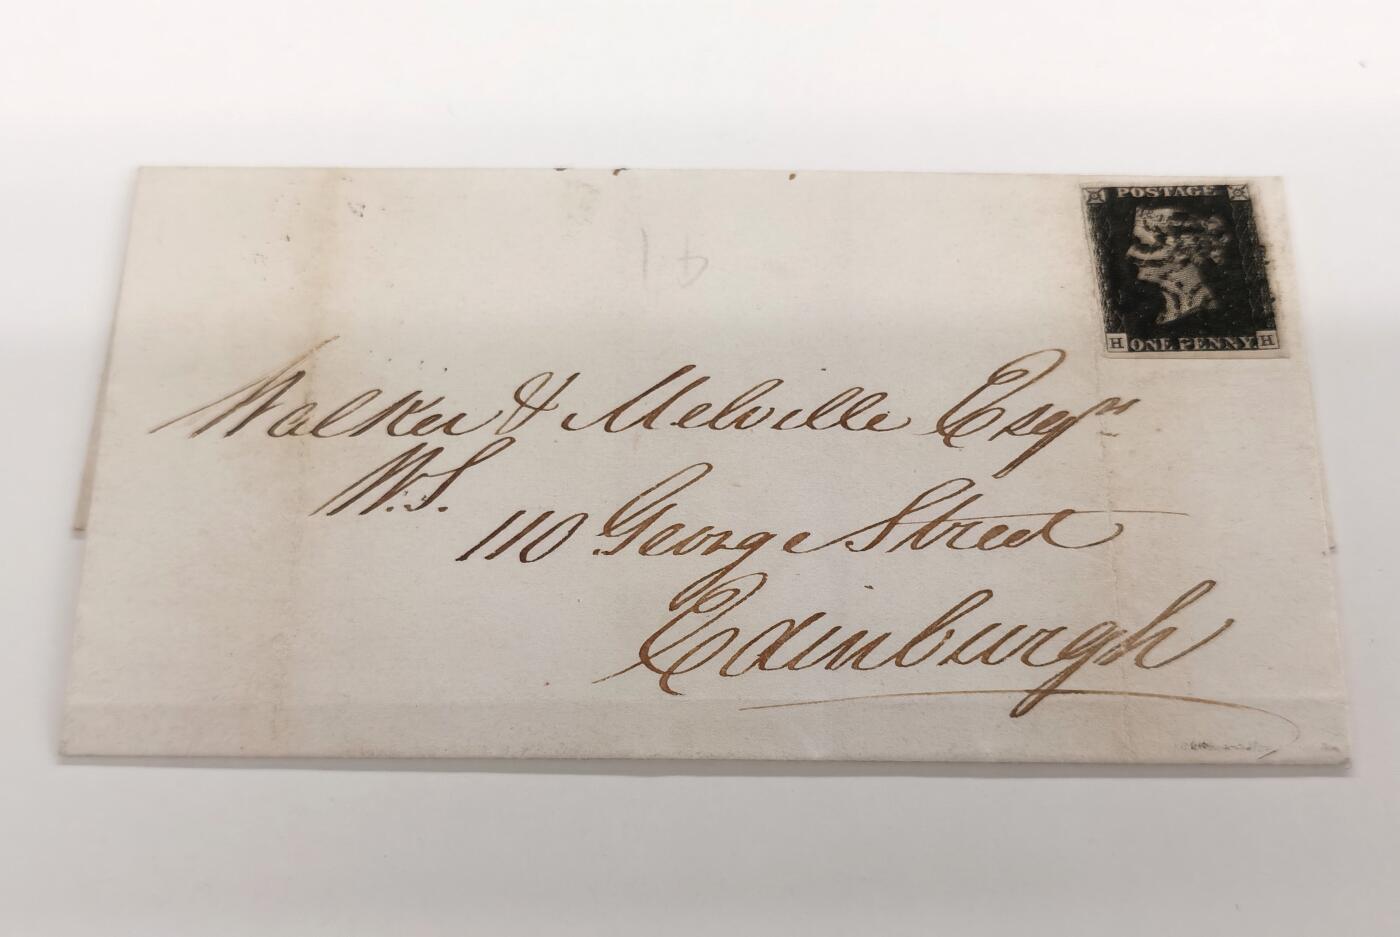 POSTAGE
H ONE PENNY H
41
Walker & Melville Esqrs
W.S.
110 George Street
Edinburgh